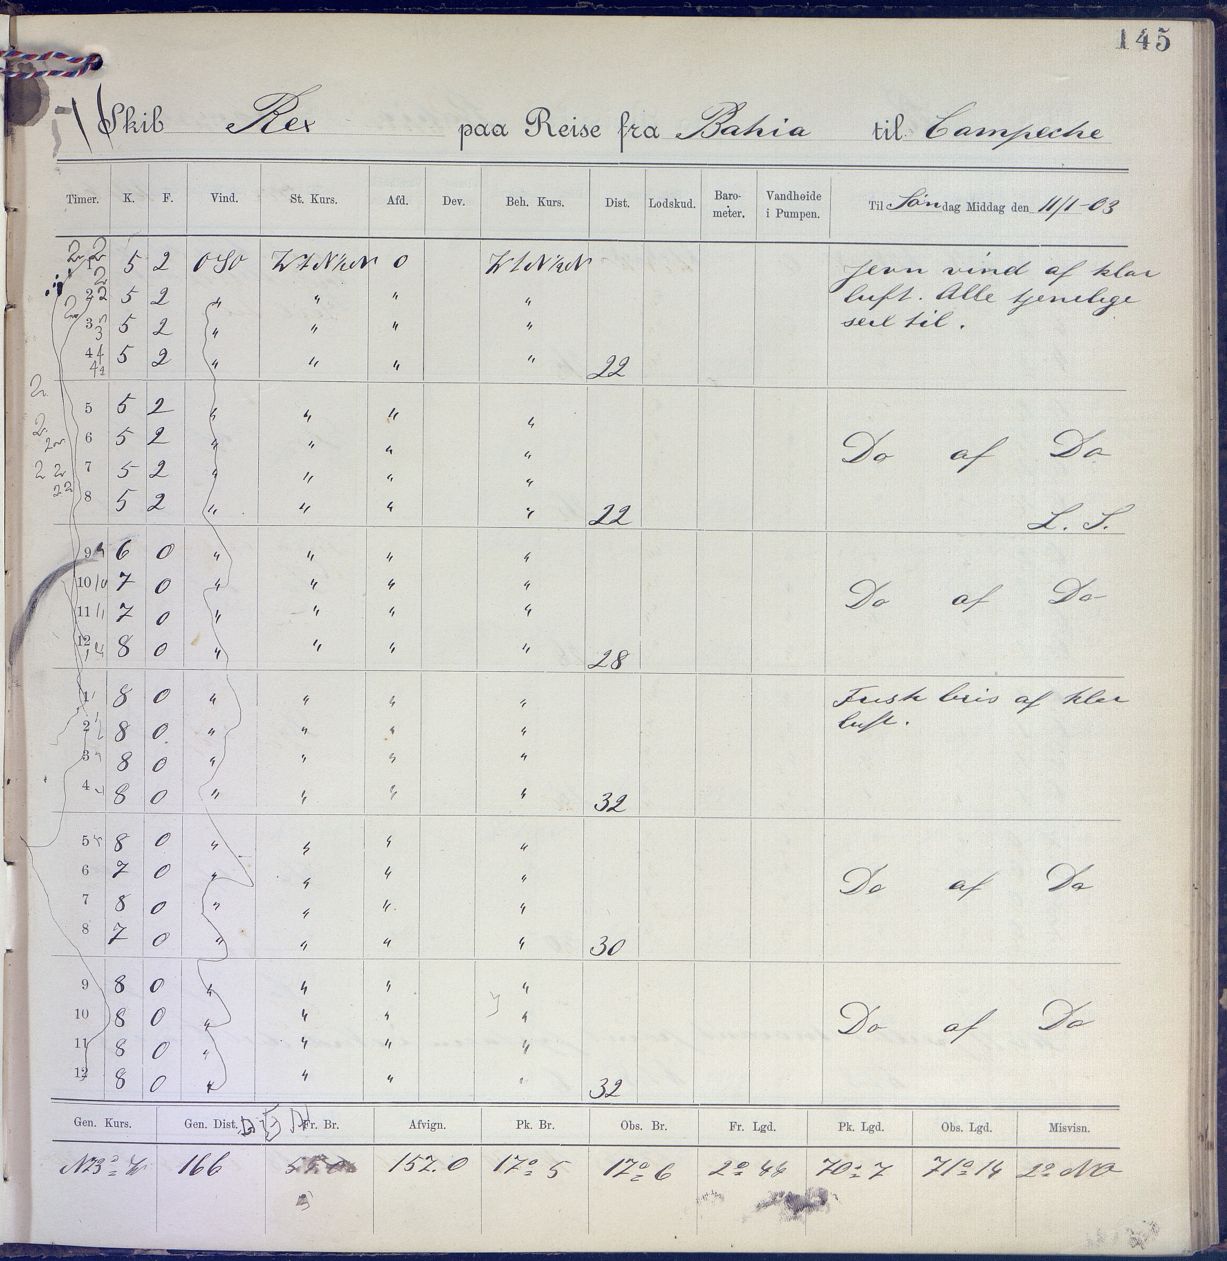 145
Skib Rex paa Reise fra Bahia til Campeche
Timer. K. F. Vind. St. Kurs. Afd. Dev. Beh. Kurs. Dist. Lodskud. Baro-meter. Vandhøide i Pumpen. Til Søndag Middag den 11/1-03
1 5 2 OSO 0 Jevn vind af klar
2 5 2 " " " " luft. Alle tjenelige
3 5 2 " " " " seil til.
4 5 2 " " " " 22
5 5 2 " " " "
6 5 2 " " " " Do af Do
7 5 2 " " " "
8 5 2 " " " " 22 L. S.
9 6 0 " " " "
10 7 0 " " " " Do af Do
11 7 0 " " " "
12 8 0 " " " " 28
1 8 0 " " " " Frisk bris af klar
2 8 0 " " " " luft.
3 8 0 " " " "
4 8 0 " " " " 32
5 8 0 " " " "
6 7 0 " " " " Do af Do
7 8 0 " " " "
8 7 0 " " " " 30
9 8 0 " " " "
10 8 0 " " " " Do af Do
11 8 0 " " " "
12 8 0 " " " " 32
Gen. Kurs. Gen. Dist. Fr. Br. Afvign. Pk. Br. Obs. Br. Fr. Lgd. Pk. Lgd. Obs. Lgd. Misvisn.
166 157.0 17° 5 17° 6 2° 44 70° 7 71° 14 2° NO